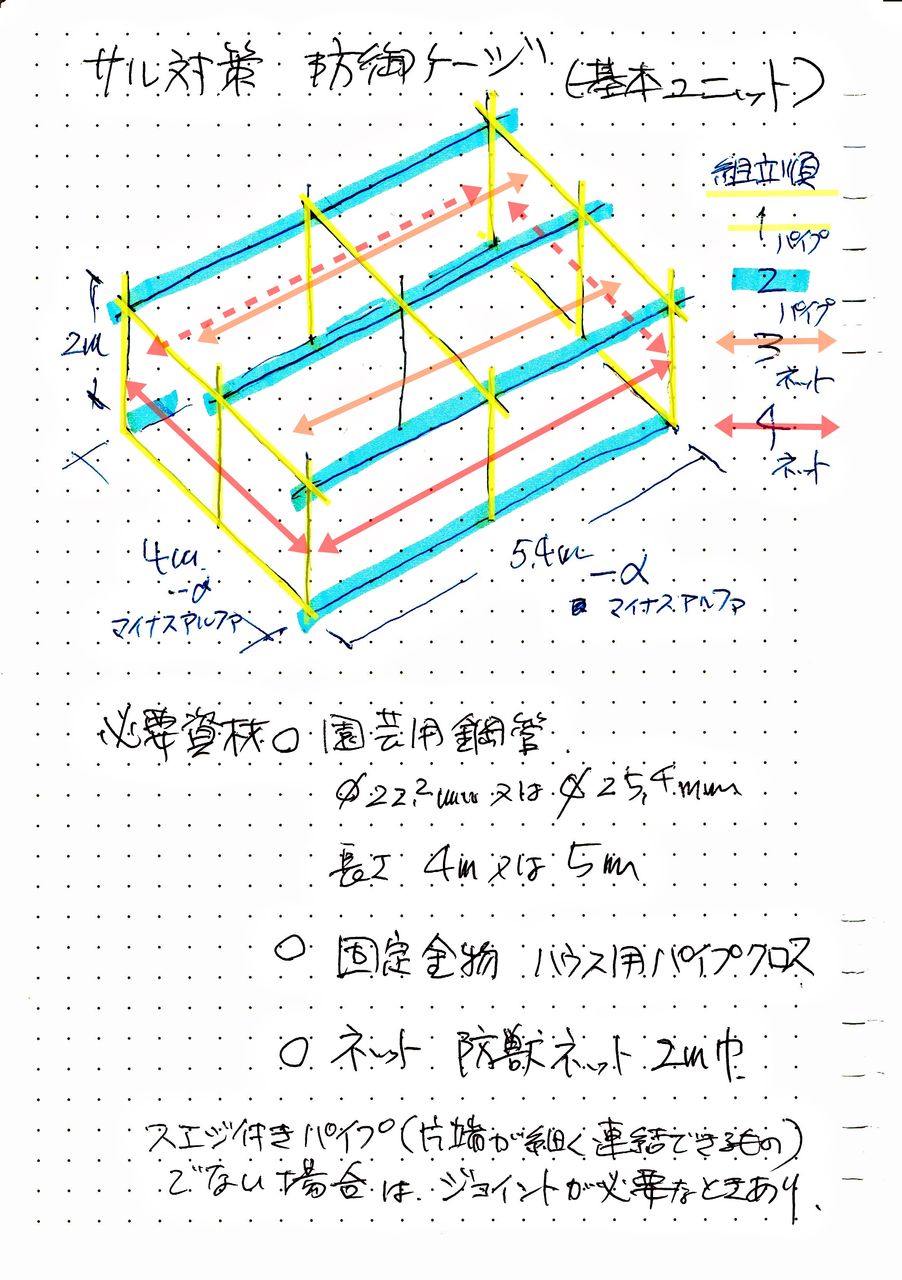 サル対策 防御ケージ (基本ユニット)
組立順
1
パイプ
2
パイプ
3
ネット
4
ネット
2m
4m
-α
マイナスアルファ
5.4m
-α
マイナスアルファ
必要資材○ 園芸用鋼管
φ22.2mm 又は φ25.4mm
長さ 4m 又は 5m
○ 固定金物 ハウス用パイプクロス
○ ネット 防獣ネット 2m巾
スエジ付きパイプ(片端が細く連結できるもの)
でない場合は ジョイントが必要なときあり.